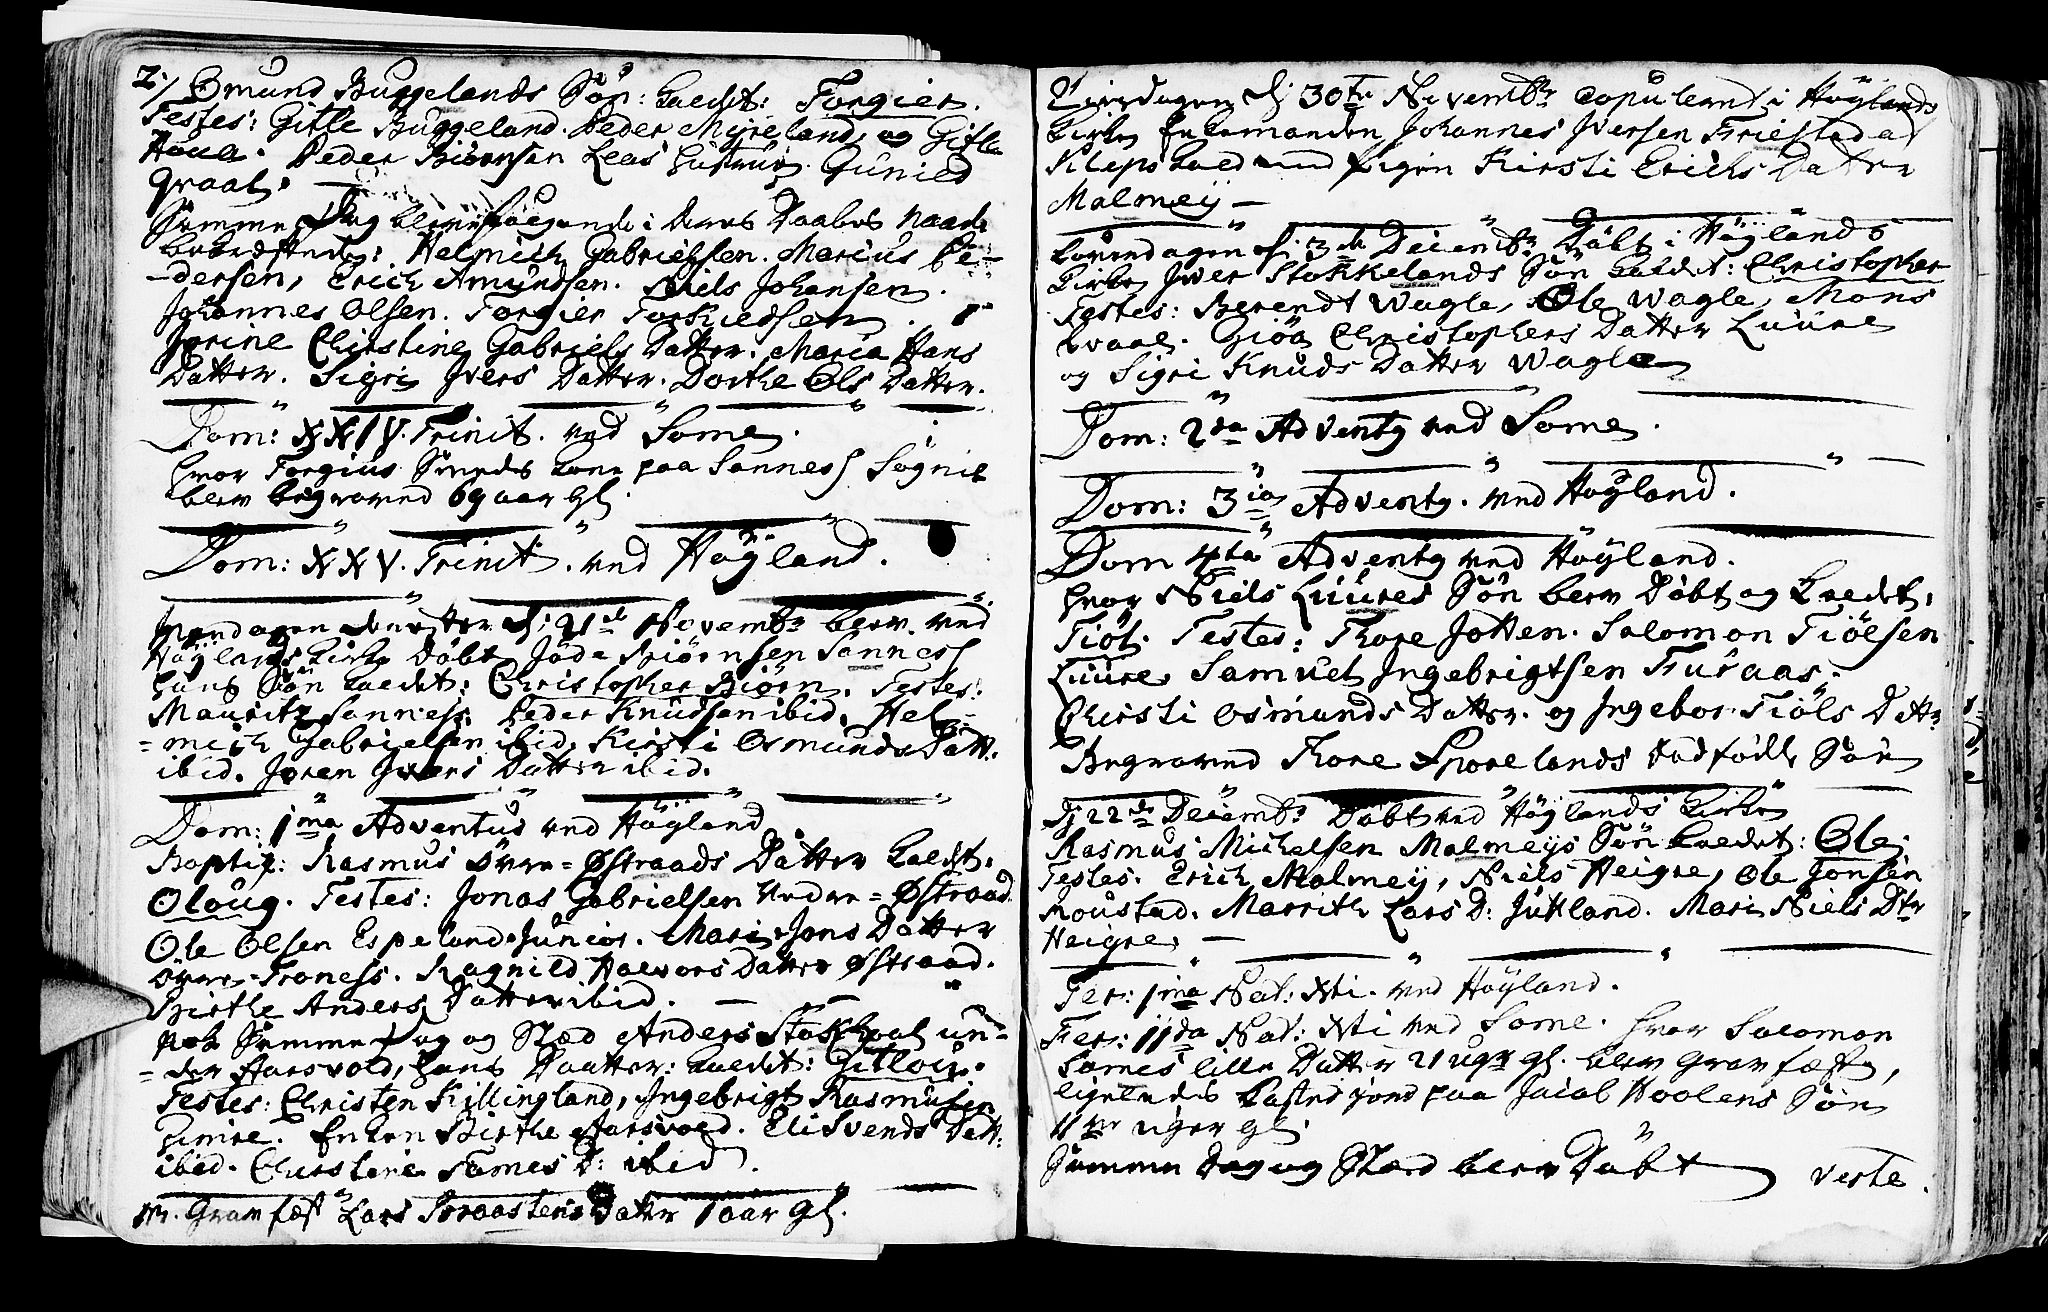 2:/ Osmund Buggelands Søn: kaldet: Torgier.
Testes: Gitle Buggeland. Peder Myreland, og Gitle
Haua. Peder Biørnsen Leas Hustrue. Gunild
Graal.
Samme Dag bleve følgende i deres Daabes Naade
bekræftede: Helmich Gabrielsen. Marius Pe-
-dersen, Erich Amundsen. Niels Johansen.
Johannes Olsen. Torgier Torkiedsen.
Jorine Christine Gabriels Datter. Maria Hans
Datter. Sigri Ivers Datter. Dorthe Ols Datter.
Dom: XXIV. Trinit. ved Some.
hvor Torgius Smeds Kone paa Sanness Sognie
blev begraved 69 aar gl.
Dom: XXV. Trinit. ved Høyland.
Mandagen derefter d: 21de Novembr blev ved
Høylands Kirke døbt Jode Biørnsen Sanness
hans Søn kaldet: Christopher Biørn. Testes:
Mauritz Sanness. Peder Knudsen ibid. Hel-
=mich Gabrielsen ibid, Kirsti Osmunds Datt:
ibid. Joren Ivers Datter ibid.
Dom: 1ma Adventus ved Høyland
Baptiz: Rasmus Øvre=Østraads Datter kaldt:
Oloug. Testes: Jonas Gabrielsen Nedre=Østraad.
Ole Olsen Espeland Junior. Mari Jons Datter
Øvre=Troness. Ragnild Halvors Datter Østraad.
Birthe Anders Datter ibid.
Nok Samme Dag og Stæd Anders Stokholt un-
=der Aarsvold, hans Daatter: kaldet: Gitlou.
Testes: Christen Killingland, Ingebrigt Rasmusen
Himle. Enken Birthe Aarsvold. Eli Svends Datt:
ibid. Christine Tømes D: ibid.
Grav fæst Lars Braastens Datter 1 aar gl.
Tiirsdagen d: 30te Novembr copuleret i Høylands
Kirke Enkemanden Johannes Iversen Friestad af
Kleps Giæld med Pigen Kirsti Erichs Datter
Malmey
Løverdagen d: 3de Decembr Døbt i Høylands
Kirke Iver Stokkelands Søn kaldet: Christopher
Testes: Berendt Wagle, Ole Wagle, Mons
Qvaal. Giøa Christophers Datter Luure
og Sigri Knuds Datter Wagle
Dom: 2da Adventg ved Some.
Dom: 3ia Adventg. ved Høyland.
Dom 4ta Adventg ved Høyland.
hvor Niels Luures Søn blev Døbt og kaldet:
Tiøl. Testes: Thore Jotten. Salomon Tiølsen
Luure, Samuel Ingebrigtsen Furaas.
Christi Osmunds Datter. og Ingebor Tiøls Dattr
Begraved Thore Sporelands dødfødde Søn
d: 22de Decembr Døbt ved Høylands Kirke
Rasmus Michelsen Malmeys Søn kaldet: Ole
Testes. Erich Malmey, Niels Heigre, Ole Jonsen
Roustad. Marrith Lars D: Jutland. Mari Niels Dtr
Heigre.
Fer: 1ma Nat: Xti. ved Høyland.
Fer: 11da Nat: Xti ved Some. hvor Salomon
Somes lille Datter 21 uger gl. blev Grav fæst,
ligeledes kasted Jord paa Jacob Hoolens Søn
11 uger gl.
Samme Dag og Stæd blev Døbt
Veste.